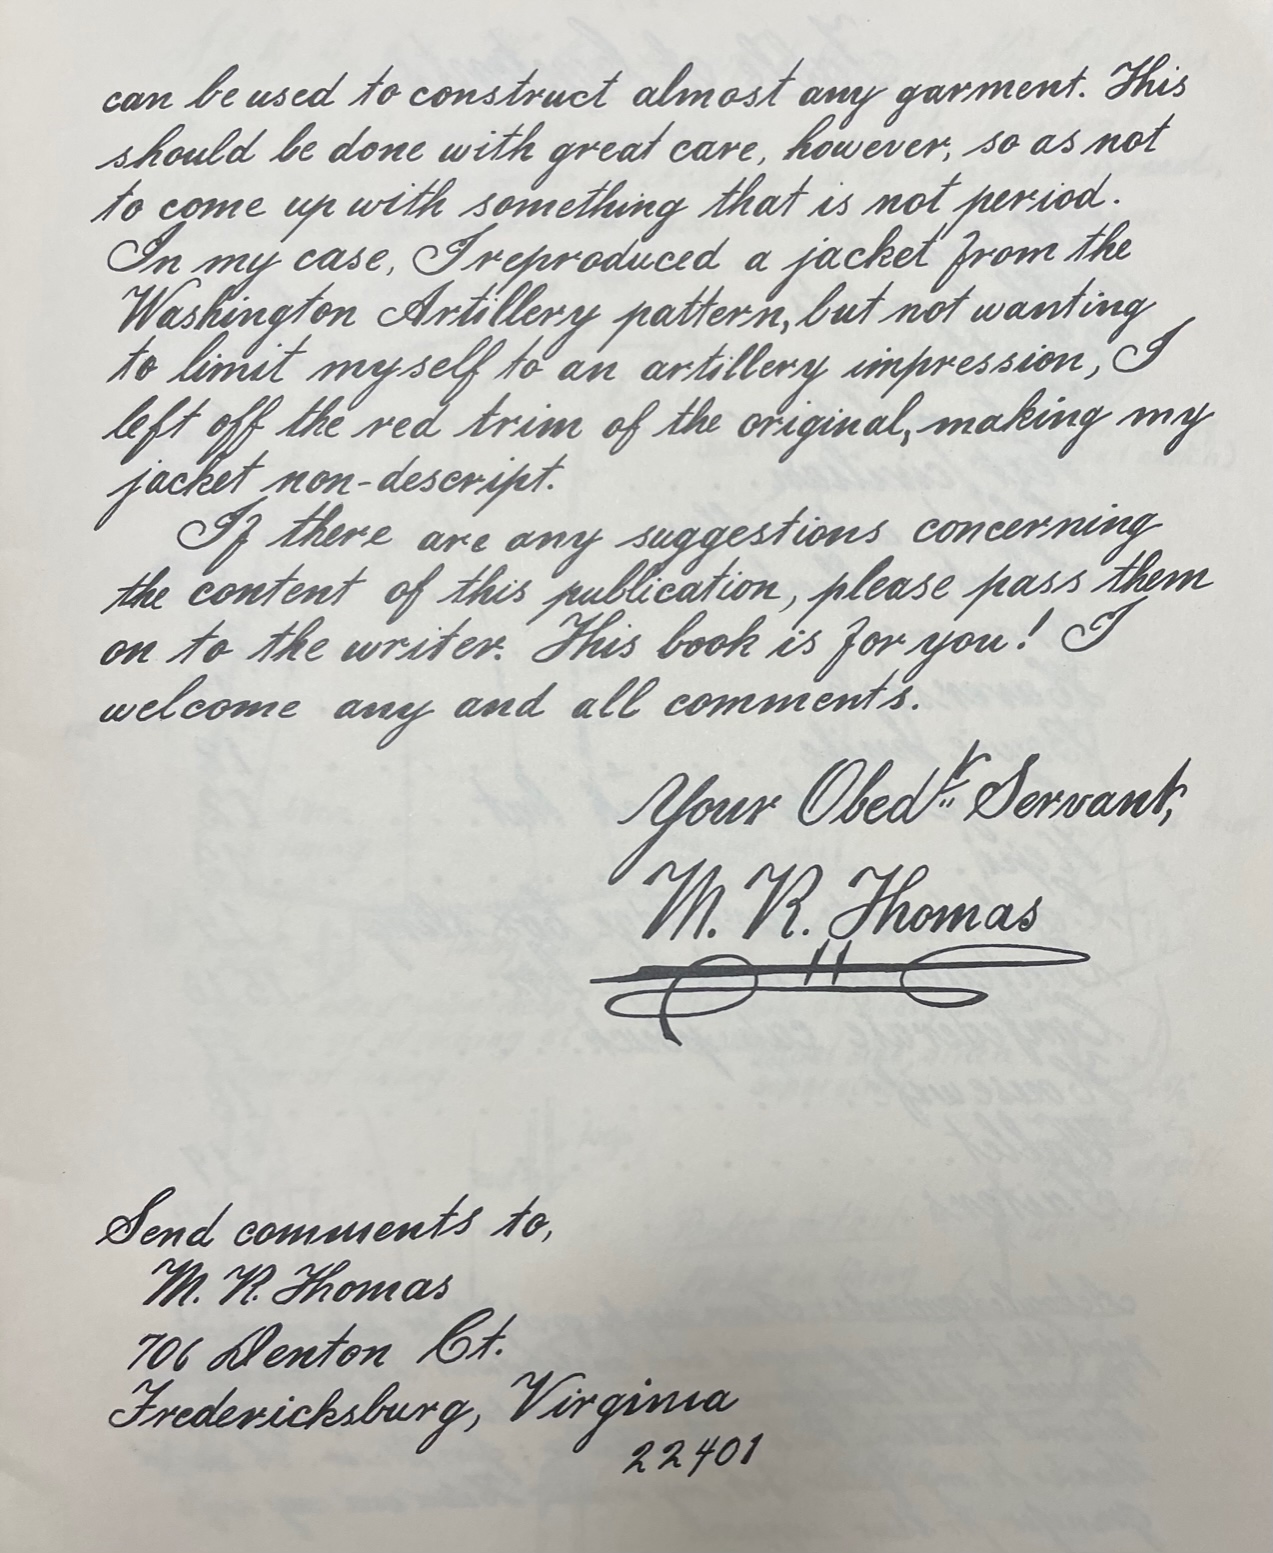 can be used to construct almost any garment. This
should be done with great care, however, so as not
to come up with something that is not period.
In my case, I reproduced a jacket from the
Washington Artillery pattern, but not wanting
to limit myself to an artillery impression, I
left off the red trim of the original, making my
jacket non-descript.
If there are any suggestions concerning
the content of this publication, please pass them
on to the writer. This book is for you! I
welcome any and all comments.
Your Obedt Servant,
M. R. Thomas
Send comments to,
M. R. Thomas
706 Denton Ct.
Fredericksburg, Virginia
22401